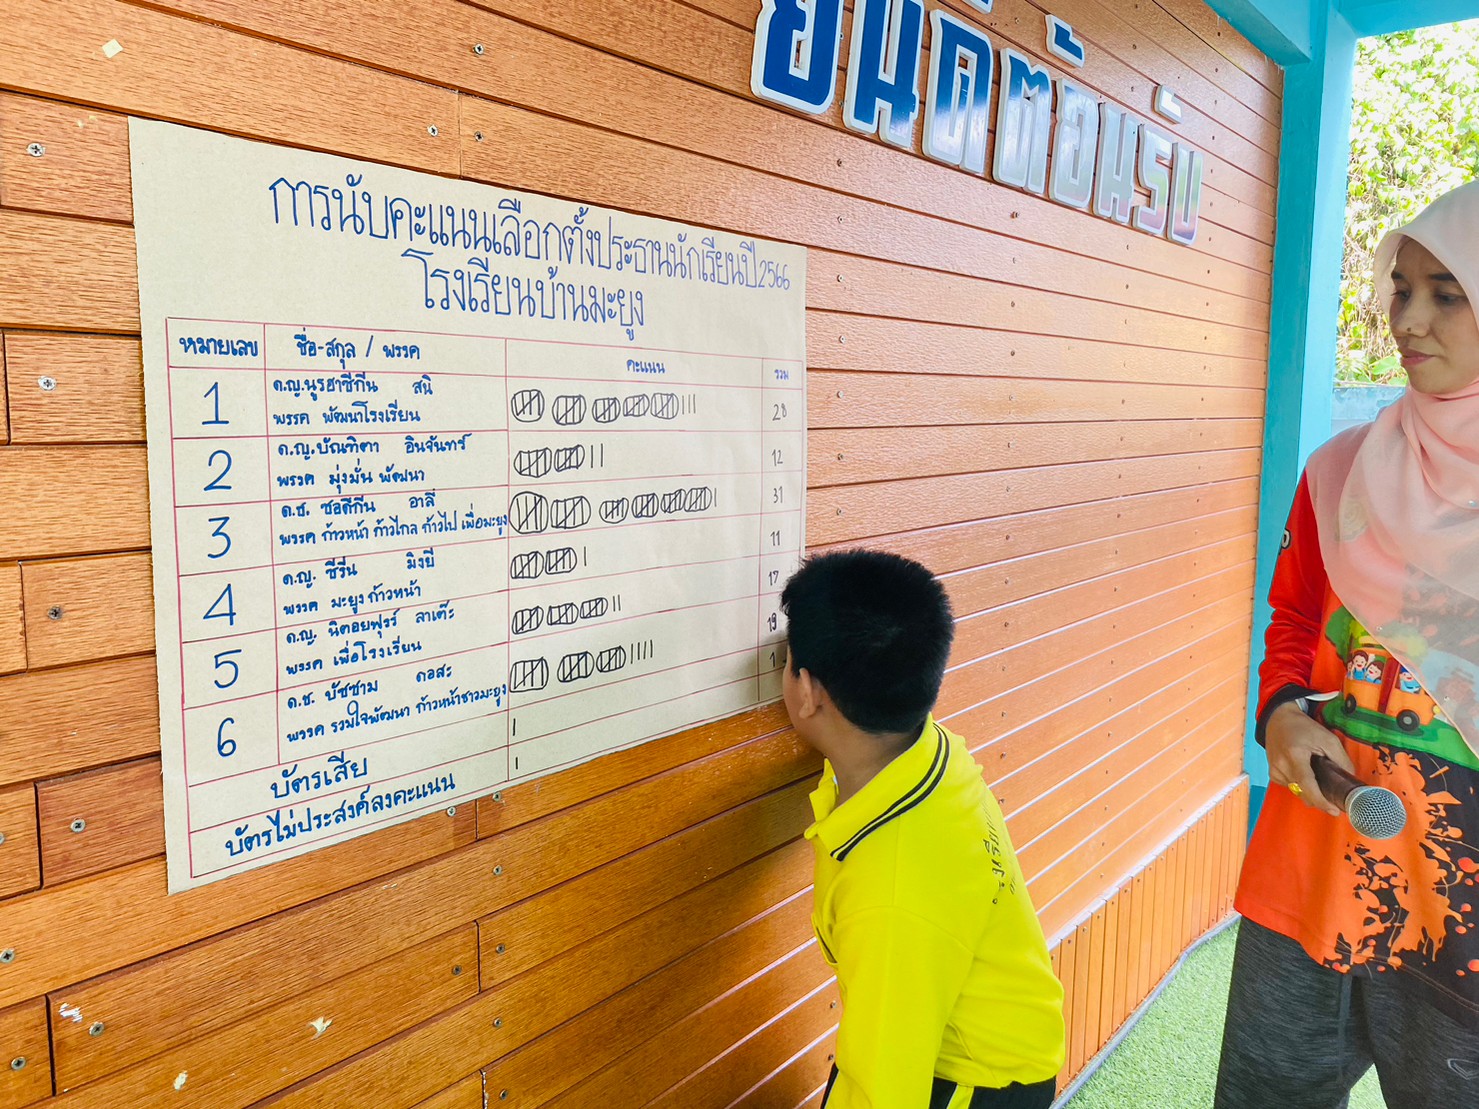 ยินดีต้อนรับ
การนับคะแนนเลือกตั้งประธานนักเรียนปี2566
โรงเรียนบ้านมะยูง
หมายเลข ชื่อ-สกุล / พรรค คะแนน รวม
1 ด.ญ.นูรฮาซีกีน สนิ 28
พรรค พัฒนาโรงเรียน
2 ด.ญ.บัณฑิตา อินจันทร์ 12
พรรค มุ่งมั่น พัฒนา
3 ด.ช. ซอดีกีน อาลี 31
พรรค ก้าวหน้า ก้าวไกล ก้าวไป เพื่อมะยูง
4 ด.ญ. ซีรีน มิงยี 11
พรรค มะยูง ก้าวหน้า
5 ด.ญ. นิตอยฟุรร์ ลาเต๊ะ 17
พรรค เพื่อโรงเรียน
6 ด.ช. บัซซาม ดอสะ 19
พรรค รวมใจพัฒนา ก้าวหน้าชาวมะยูง
บัตรเสีย 1
บัตรไม่ประสงค์ลงคะแนน